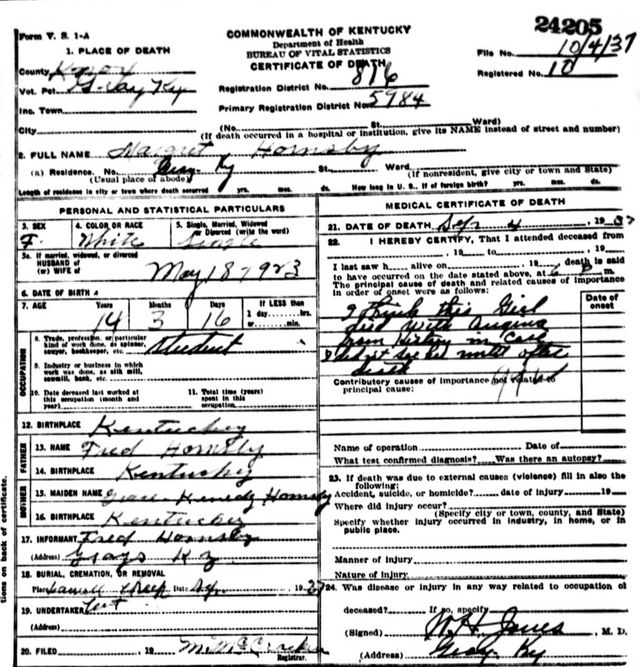 24205
Form V. S. 1-A
COMMONWEALTH OF KENTUCKY
Department of Health
BUREAU OF VITAL STATISTICS
CERTIFICATE OF DEATH
File No. 10/4/37
Registered No. 10
1. PLACE OF DEATH
County Knox
Vot. Pct. Gray Ky
Inc. Town
City
Registration District No. 816
Primary Registration District No. 5984
(No. St. Ward)
(If death occurred in a hospital or institution, give its NAME instead of street and number)
2. FULL NAME Margret Hornsby
(a) Residence. No. Gray Ky St. Ward.
(Usual place of abode) (If nonresident, give city or town and State)
Length of residence in city or town where death occurred yrs. mos. ds. How long in U. S., if of foreign birth? yrs. mos. ds.
PERSONAL AND STATISTICAL PARTICULARS
3. SEX F. 4. COLOR OR RACE White 5. Single, Married, Widowed or Divorced (write the word) Single
5a. If married, widowed, or divorced
HUSBAND of
(or) WIFE of
6. DATE OF BIRTH May 18 1923
7. AGE Years 14 Months 3 Days 16 If LESS than
1 day, hrs.
or min.
OCCUPATION
8. Trade, profession, or particular
kind of work done, as spinner,
sawyer, bookkeeper, etc. Student
9. Industry or business in which
work was done, as silk mill,
sawmill, bank, etc.
10. Date deceased last worked at
this occupation (month and
year)
11. Total time (years)
spent in this
occupation
12. BIRTHPLACE Kentucky
FATHER
13. NAME Fred Hornsby
14. BIRTHPLACE Kentucky
MOTHER
15. MAIDEN NAME Grace Kenedy Hornsby
16. BIRTHPLACE Kentucky
17. INFORMANT Fred Hornsby
(Address) Grays Ky
18. BURIAL, CREMATION, OR REMOVAL
Place Creek Date 1937
19. UNDERTAKER
20. FILED , 19 Registrar.
MEDICAL CERTIFICATE OF DEATH
21. DATE OF DEATH Sep 4, 1937
22. I HEREBY CERTIFY, That I attended deceased from
, 19 to , 19
I last saw h alive on , 19 death is said
to have occurred on the date stated above, at 6 P m.
The principal cause of death and related causes of importance
in order of onset were as follows:
Date of onset
I think this Girl
died with Angina
from history in Case
I did not see her until after
death
Contributory causes of importance not related to
principal cause:
Name of operation Date of
What test confirmed diagnosis? Was there an autopsy?
23. If death was due to external causes (violence) fill in also the
following:
Accident, suicide, or homicide? date of injury 19
Where did injury occur?
(Specify city or town, county, and State)
Specify whether injury occurred in industry, in home, or in
public place.
Manner of injury
Nature of injury
24. Was disease or injury in any way related to occupation of
deceased? If so, specify
(Signed) W H Jones, M. D.
(Address) Gray Ky
tions on back of certificate.